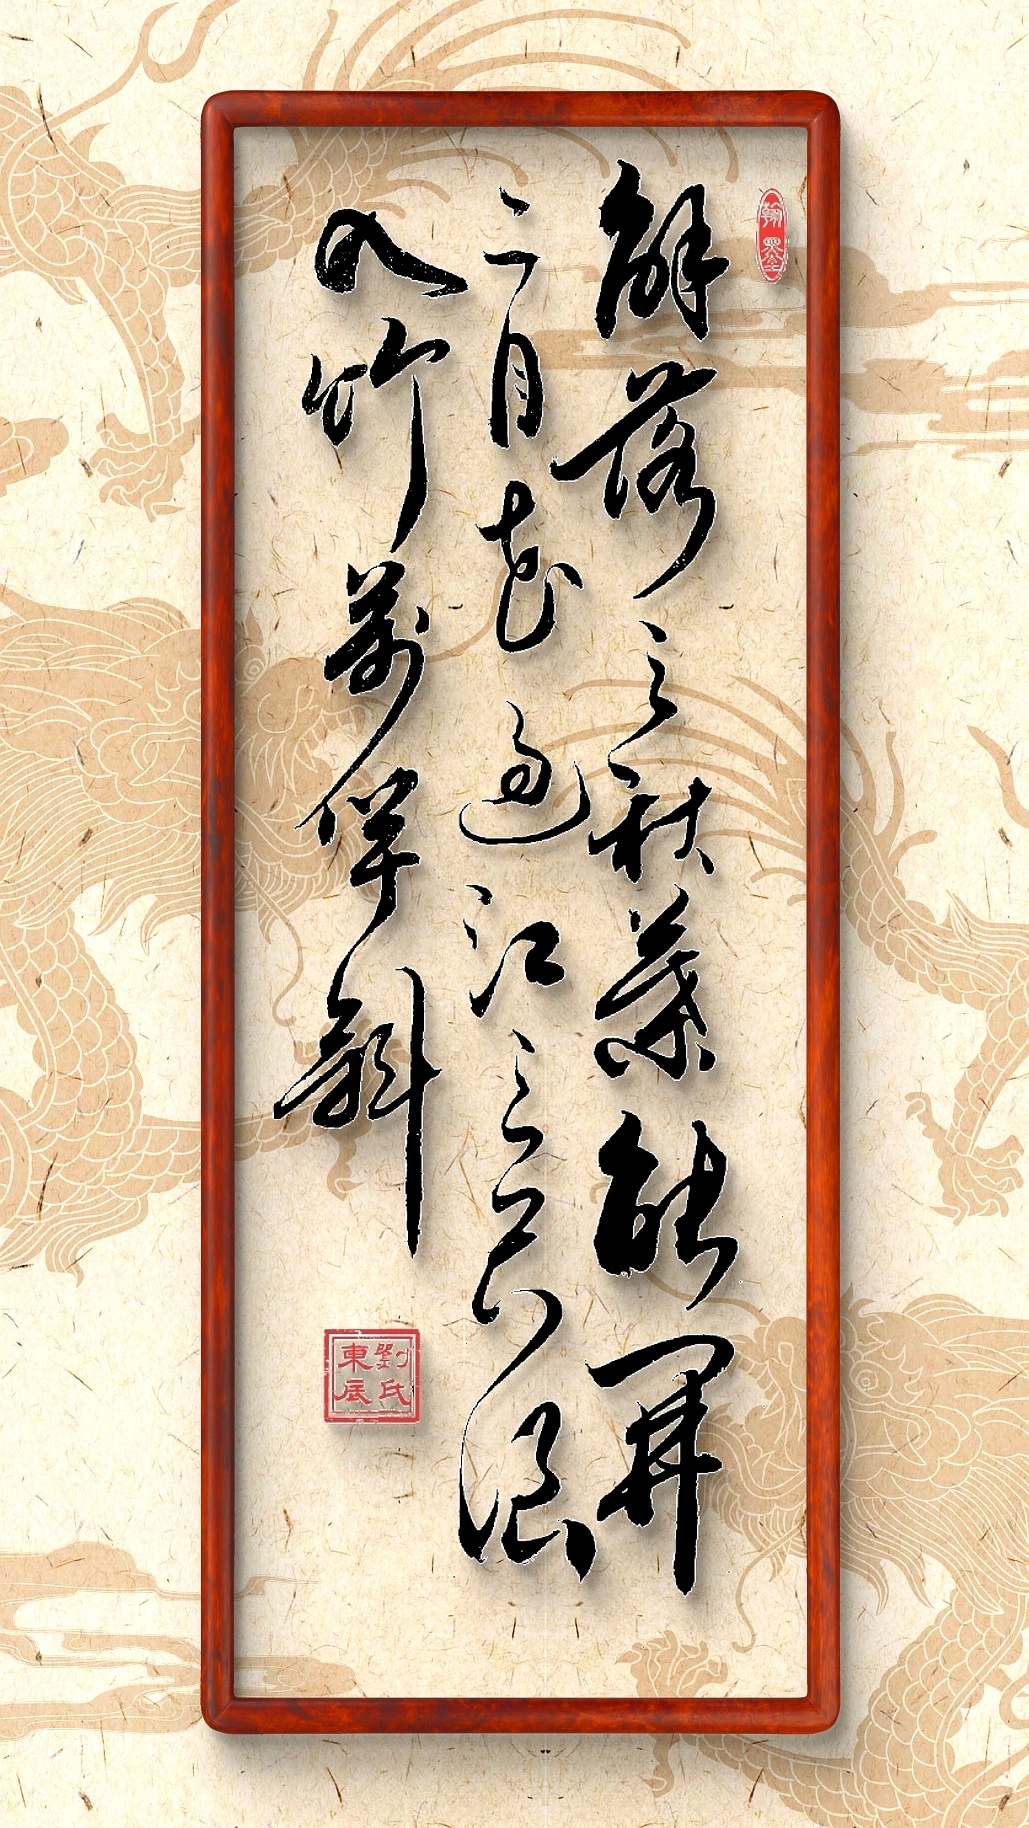 翰墨
解落三秋葉能開
二月花過江三尺浪
入竹萬竿斜
劉氏東